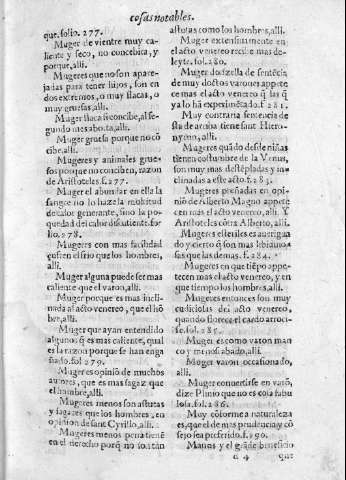 cosas notables.
que. folio. 277.
Muger de vientre muy ca-
liente y seco, no concebira, y
porque, alli.
Mugeres que no son apare-
jadas para tener hijos, son en
dos extremos, o muy flacas, o
muy gruesas, alli.
Muger flaca si concibe, al se-
gundo mes aborta, alli.
Muger gruesa porque no cō
cibe, alli.
Mugeres y animales grue-
sos porque no conciben, razon
de Aristoteles. f. 277.
Muger el abundar en ella la
sangre no lo haze la multitud
de calor generante, sino la po-
quedad del calor disoluente. fo-
lio. 278.
Mugeres con mas facilidad
sufren el frio que los hombres,
alli.
Muger alguna puede ser mas
caliente que el varon, alli.
Muger porque es mas incli-
nada al acto venereo, que el hō
bre, alli.
Muger que ayan entendido
algunos q̄ es mas caliente, qual
es la razon porque se han enga
ñado. fol. 279.
Mugeres opinió de muchos
autores, que es mas sagaz que
el hombre, alli.
Mugeres menos son astutas
y sagazes que los hombres, en
opinion de sant Cyrillo, alli.
Mugeres menos pena tienē
en el derecho porq̄ no son tan
astutas como los hombres, alli.
Muger extensiuamente en
el acto venereo recibe mas de-
leyte. fo. 280.
Muger donzella de sentēcia
de muy doctos varones appete
ce mas el acto venereo q̄ las q̄
ya lo hā experimētado. f. 281.
Muy contraria sentencia de
sta de arriba tiene sant Hiero-
nymo, alli.
Mugeres quādo desde niñas
tienen costumbre de la Venus,
son muy mas destēpladas y in-
clinadas a este acto. f. 283.
Mugeres preñadas en opi-
niō de Alberto Magno appete
cen mas el acto venereo, alli. Y
Aristoteles cōtra Alberto, alli.
Mugeres esteriles es aueriguа
do y cierto q̄ son mas libidino-
sas que las demas. f. 284.
Mugeres en que tiēpo appe-
tecen mas el acto venereo, y en
que tiempo los hombres, alli.
Mugeres entonces son muy
cudiciosas del acto venereo,
quando florece el cardo arreci-
fe. fol. 285.
Muger es como varon man
co y menoscabado, alli.
Muger varon occasionado,
alli.
Muger conuertirse en varō,
dize Plinio que no es cosa fabu
losa. fol. 286.
Muy cōforme a naturaleza
es, que el de mas prudencia y cō
sejo sea preferido. f. 290.
Manos y el grāde beneficio
que